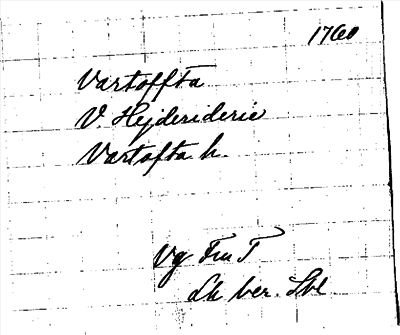 1760
Vartoffta
V. Hejderiderie
Vartofta h.
Vg Fru T
Lk ber. Lbl